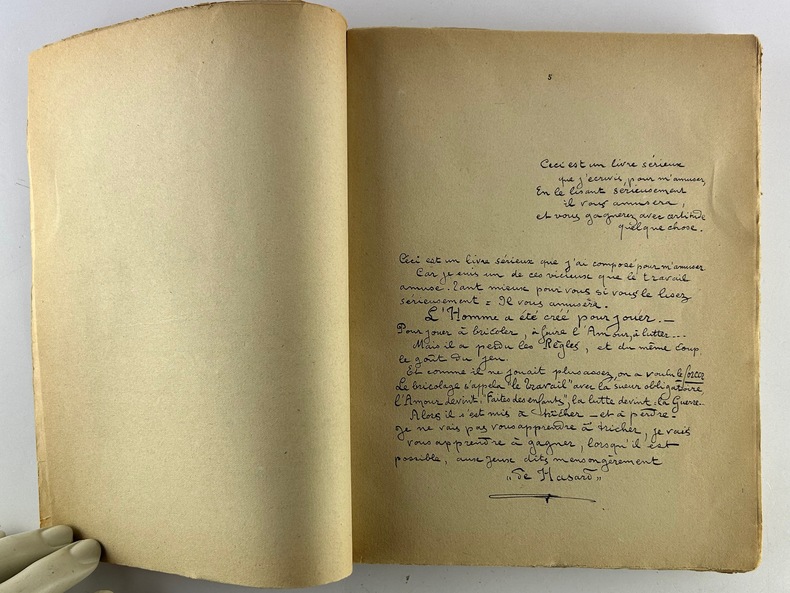 5
Ceci est un livre sérieux
que j'écrivis, pour m'amuser,
En le lisant sérieusement
il vous amusera,
et vous gagnerez avec certitude
quelque chose.
Céci est un livre sérieux que j'ai composé pour m'amuser
Car je suis un de ces vicieux que le travail
amuse. Tant mieux pour vous si vous le lisez
sérieusement = Il vous amusera.
L'Homme a été créé pour jouer. _
Pour jouer à bricoler, à faire l'Amour, à lutter...
Mais il a perdu les Règles, et du même coup,
le goût du jeu.
Et comme il ne jouait plus assez, on a voulu le forcer
Le bricolage s'appela "le travail" avec la sueur obligatoire,
l'Amour devint: "Faites des enfants", la lutte devint: la Guerre..
Alors il s'est mis à tricher _ et à perdre.
Je ne vais pas vous apprendre à tricher, je vais
vous apprendre à gagner, lorsqu'il est
possible, aux jeux dits mensongèrement
"de Hasard"